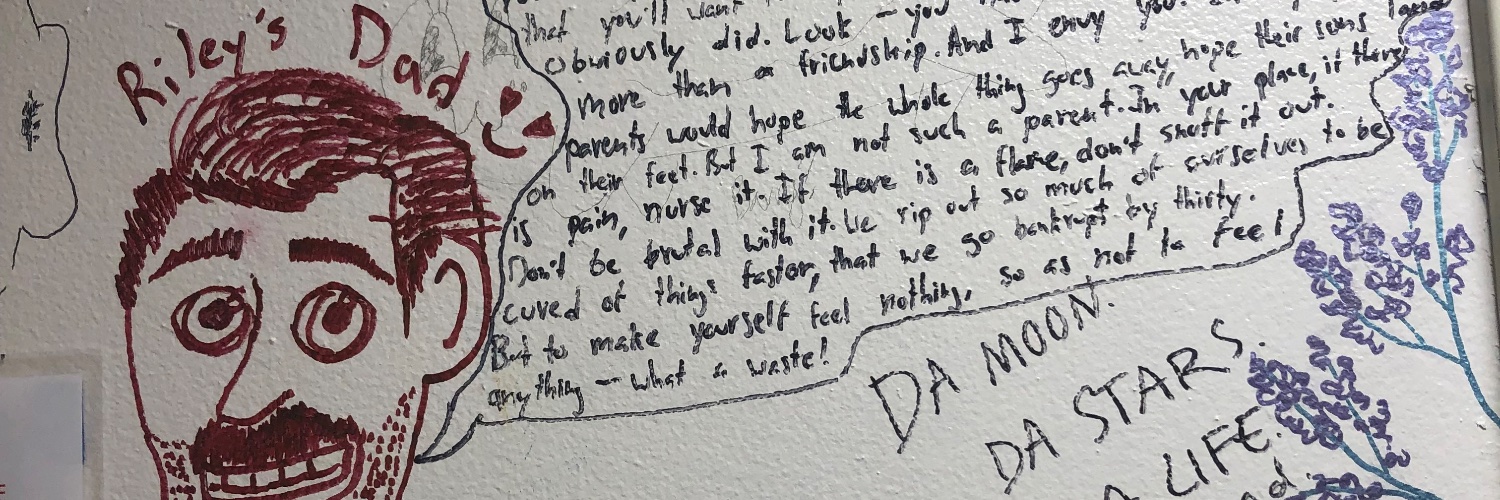 Riley's Dad
that you'll want
obviously did. Look – you
more than a friendship. And I envy you.
parents would hope the whole thing goes away, hope their sons land
on their feet. But I am not such a parent. In your place, if there
is pain, nurse it. If there is a flame, don't snuff it out.
Don't be brutal with it. We rip out so much of ourselves to be
cured of things faster, that we go bankrupt by thirty.
But to make yourself feel nothing, so as not to feel
anything – what a waste!
DA MOON.
DA STARS.
LIFE.